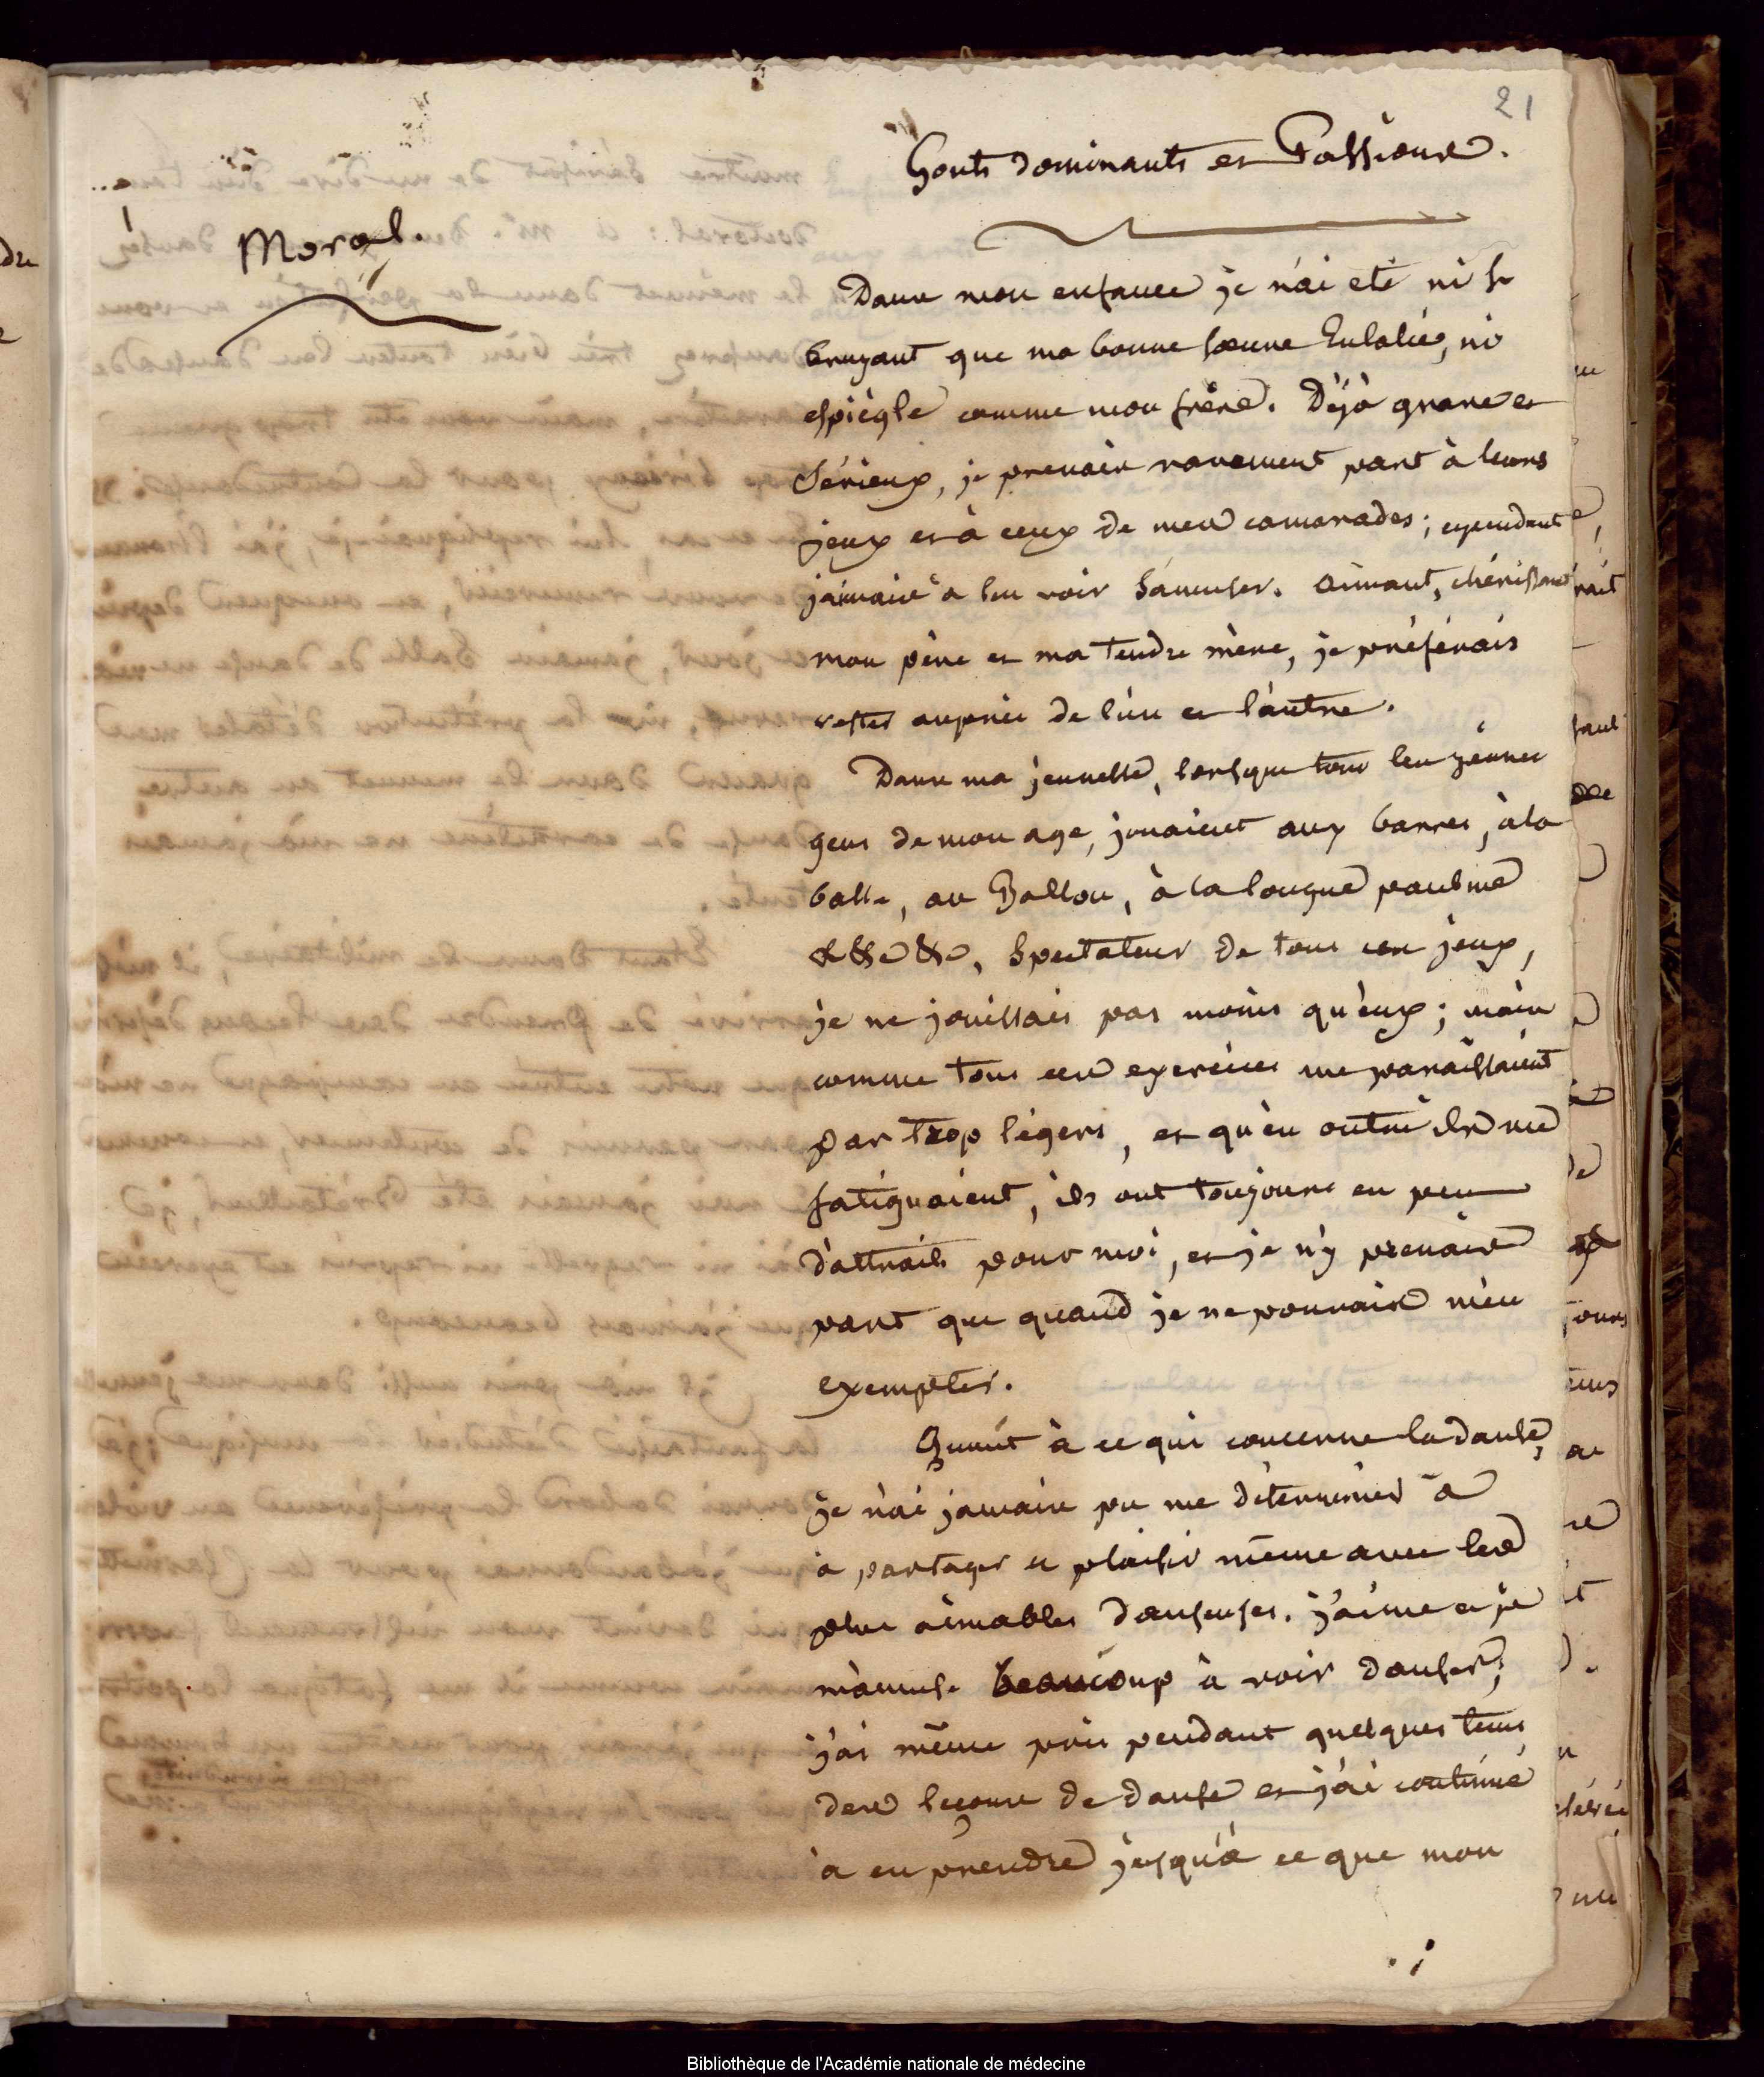 21
Gouts dominants et Passions.
Moral.
Dans mon enfance je n'ai eté ni si
bruyant que ma bonne soeure Eulalie, ni
espiègle comme mon frère. Déjà grave et
sérieux, je prenais rarement part à leurs
jeux et à ceux de mes camarades; cependant
j'aimais à les voir s'amuser. Aimant, chérissant
mon père et ma tendre mère, je préférais
rester auprès de l'un et l'autre.
Dans ma jeunesse, lorsque tous les jeunes
gens de mon age, jouaient aux barres, à la
balle, au Ballon, à la longue paulme
&c &c &c, Spectateur de tous ces jeux,
je ne jouissais pas moins qu'eux; mais
comme tous ces exercices me paraissaient
par trop légers, et qu'en outre ils me
fatiguaient, ils ont toujours eu peu
d'attraits pour moi, et je n'y prenais
part que quand je ne pouvais m'en
exempter.
Quant à ce qui concerne la danse,
je n'ai jamais pu me déterminer à
à partager ce plaisir même avec les
plus aimables danseuses. j'aime et je
m'amuse beaucoup à voir danser;
j'ai même pris pendant quelques tems
des leçons de danse et j'ai continué
à en prendre jusqu'à ce que mon
Bibliothèque de l'Académie nationale de médecine